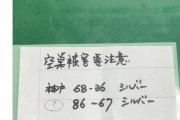 空巣被害要注意
神戸 68-36 シルバー
? 86-67 シルバー